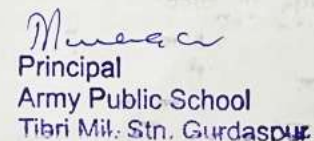 Principal
Army Public School
Tibri Mil. Stn. Gurdaspur